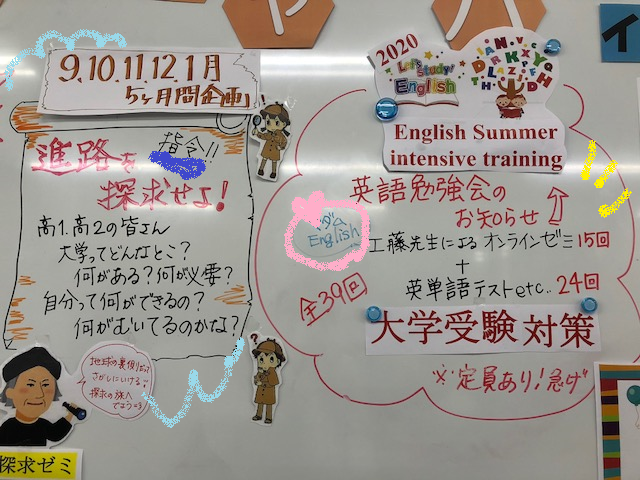 9,10,11,12,1月
5ヶ月間企画!
指令!!
進路を
探求せよ!
高1.高2の皆さん
大学ってどんなとこ?
何がある?何が必要?
自分って何ができるの?
何がむいてるのかな?
地球の裏側だって
さがしにいける!
探求の旅へ
でよう=3
探求ゼミ
2020
Let's Study!
English
English Summer
intensive training
英語勉強会の
お知らせ
English
工藤先生によるオンラインゼミ15回
+
英単語テストetc. 24回
全39回
大学受験対策
※定員あり!急げ